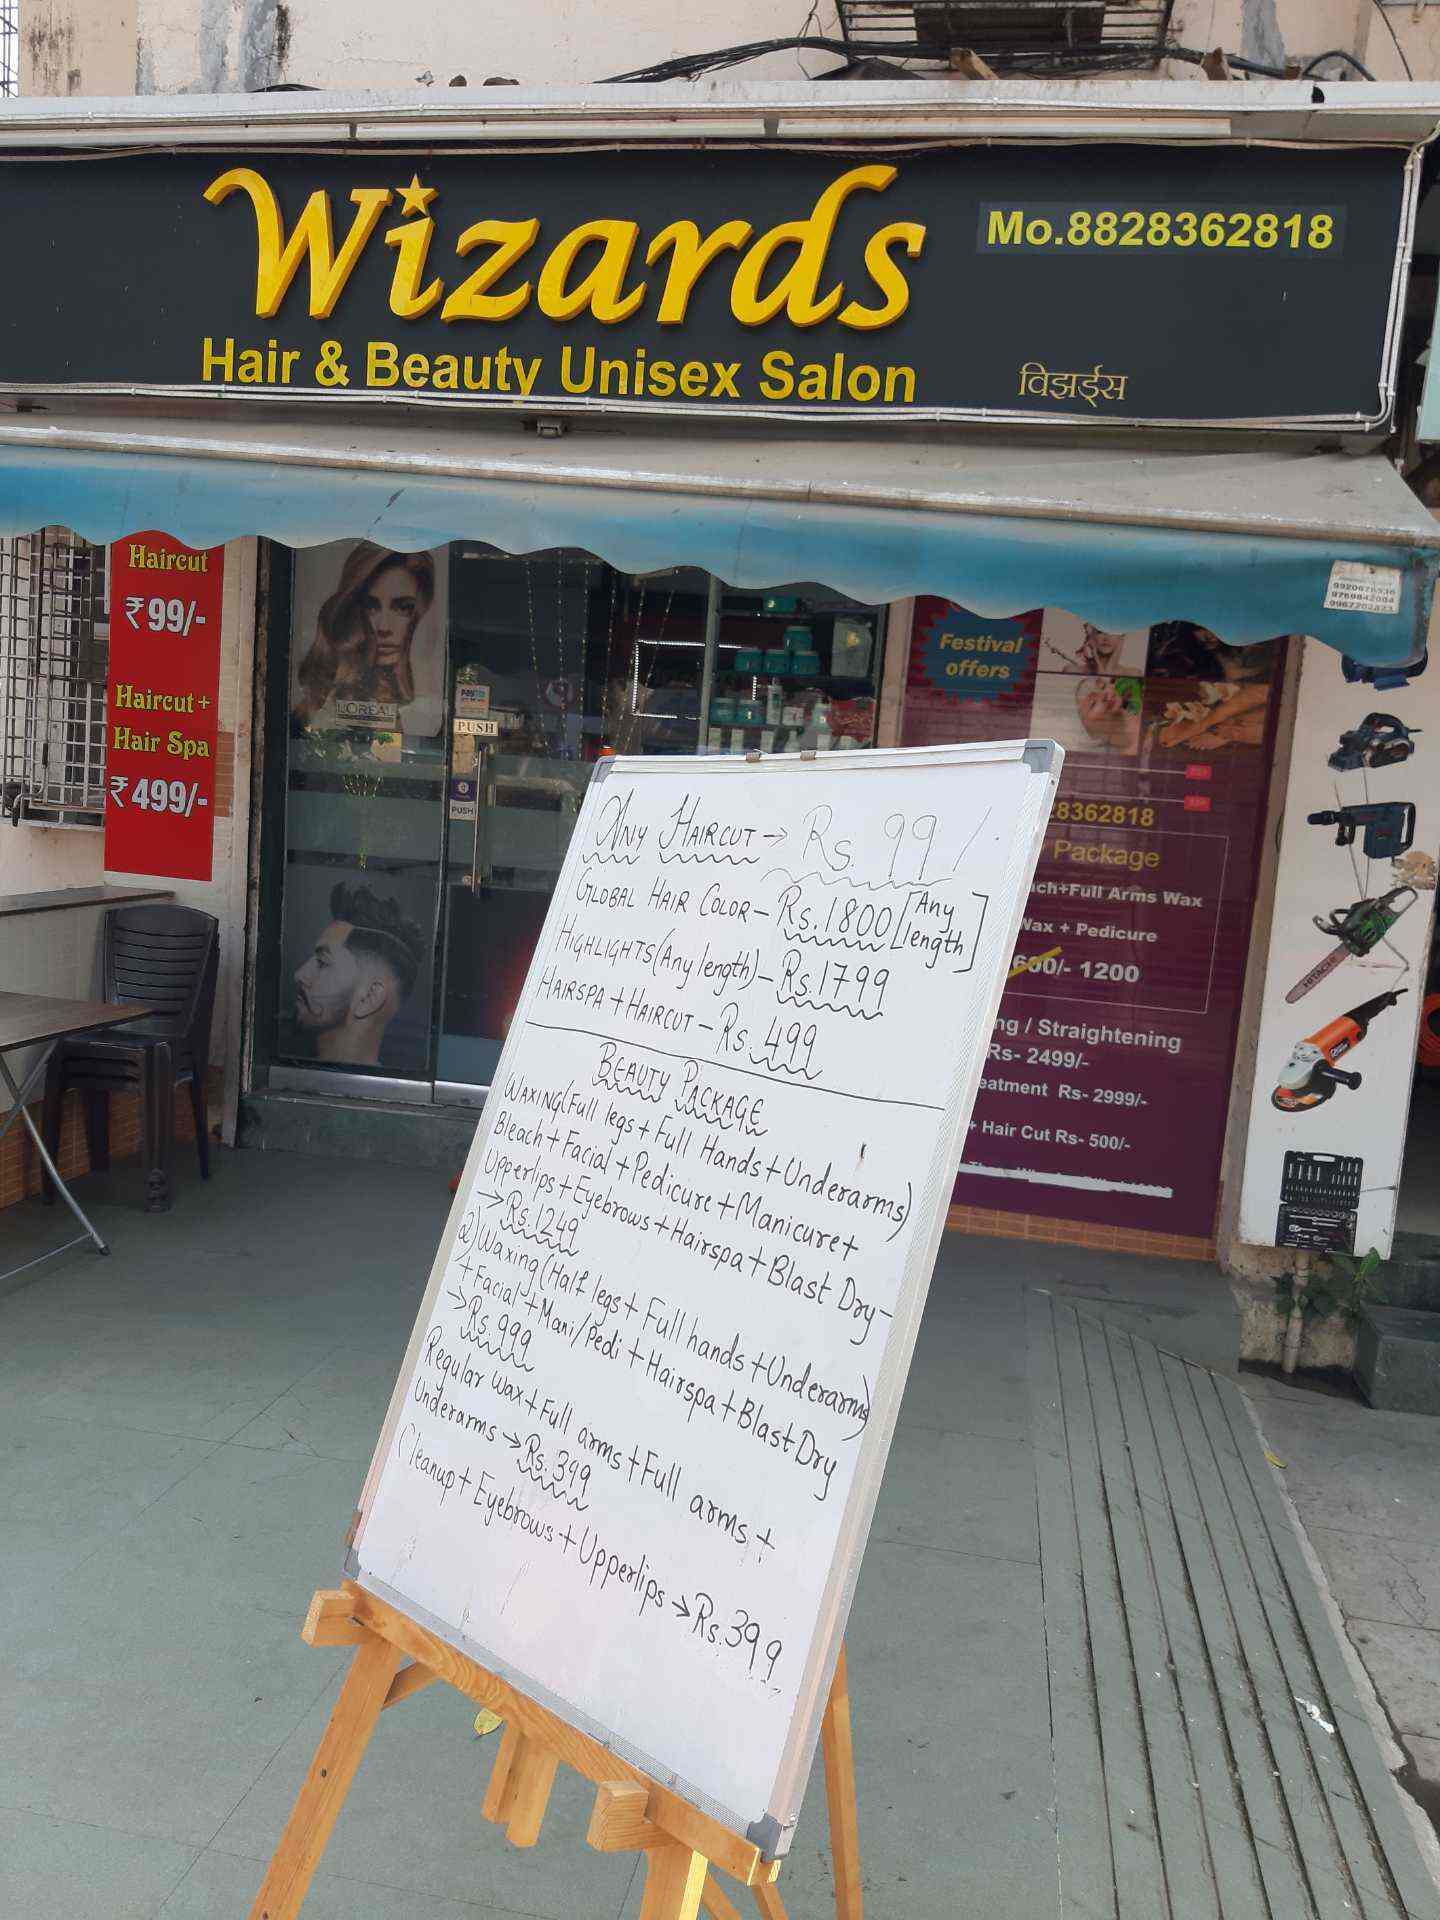 Wizards
Mo.8828362818
Hair & Beauty Unisex Salon
विझर्ड्स
Haircut
₹99/-
Haircut+
Hair Spa
₹499/-
L'OREAL
PUSH
PUSH
Festival
offers
8362818
Package
ch+Full Arms Wax
Wax + Pedicure
600/- 1200
ng / Straightening
Rs- 2499/-
eatment Rs- 2999/-
+ Hair Cut Rs- 500/-
HITACHI
ANY HAIRCUT → Rs. 99/.
GLOBAL HAIR COLOR - Rs.1800 [Any length]
HIGHLIGHTS (Any length) - Rs.1799
HAIRSPA + HAIRCUT - Rs. 499
BEAUTY PACKAGE
WAXING(Full legs + Full Hands + Underarms)
Bleach + Facial + Pedicure + Manicure +
Upperlips + Eyebrows + Hairspa + Blast Dry -
→ Rs.1249
2) Waxing (Half legs + Full hands + Underarms)
+ Facial + Mani/Pedi + Hairspa + Blast Dry
→ Rs. 999
Regular wax + Full arms + Full arms +
Underarms → Rs. 399
Cleanup + Eyebrows + Upperlips → Rs.399